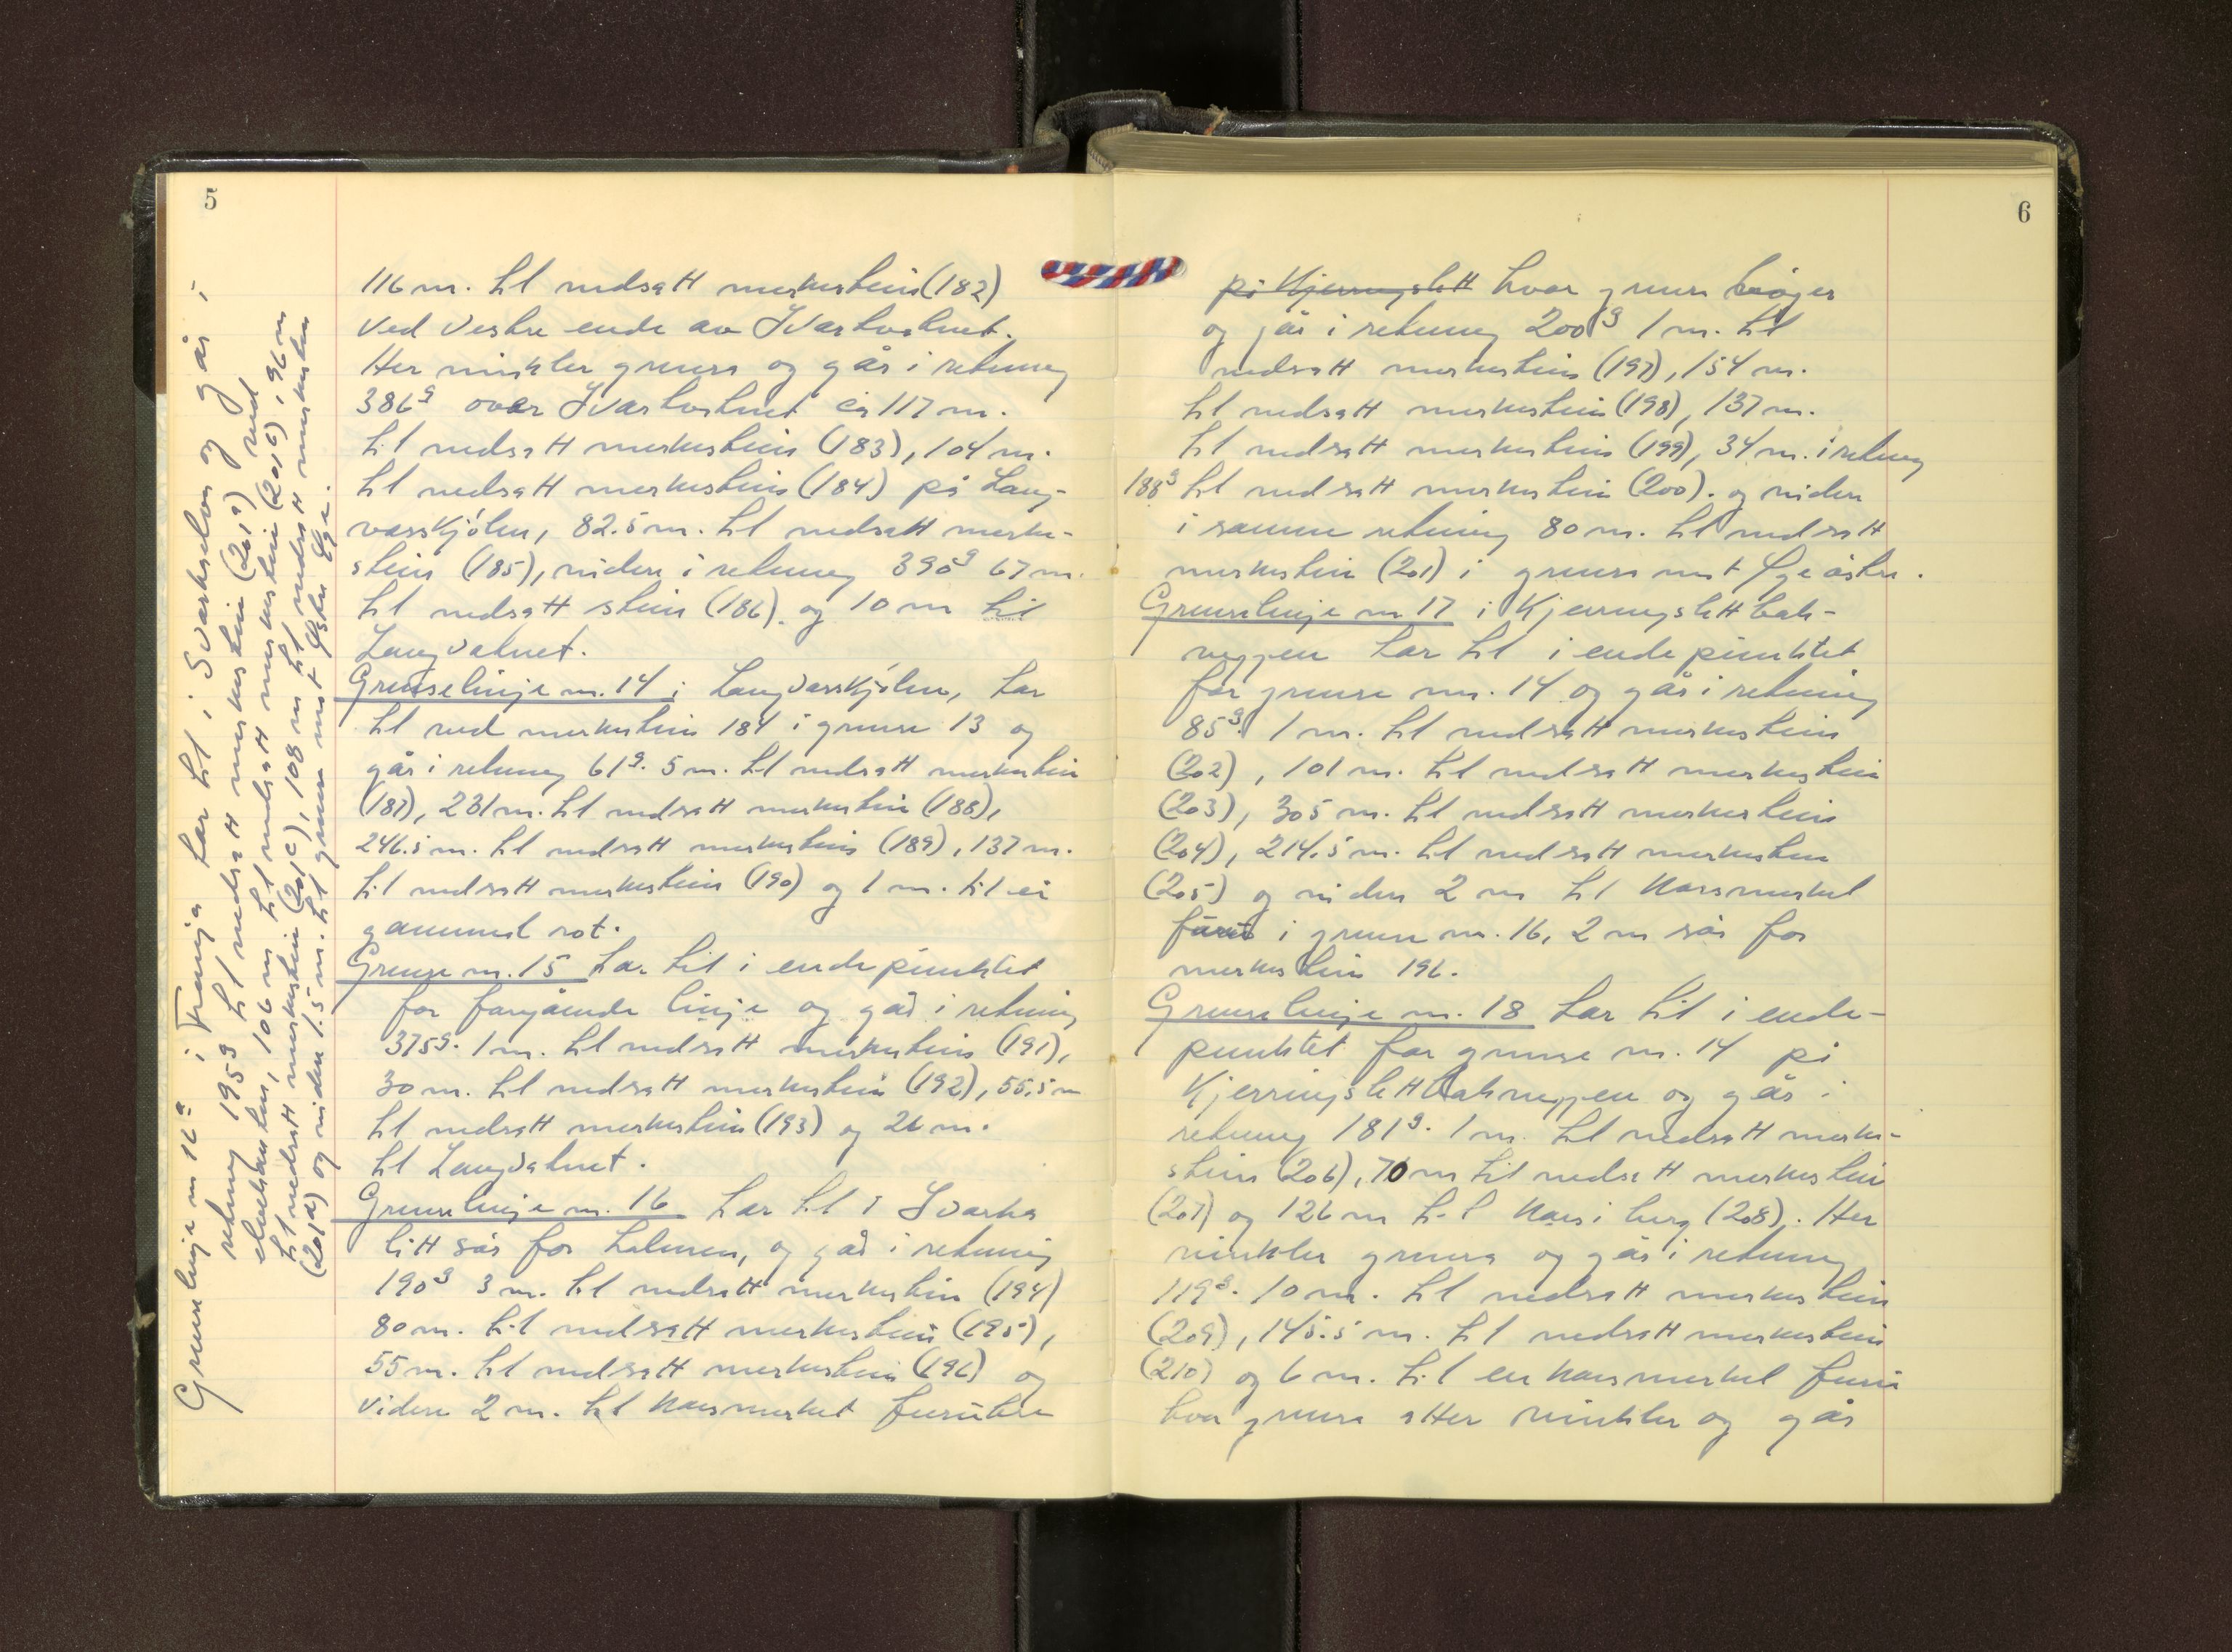 5
116 m. til nedsatt merkestein (182)
ved vestre ende av Svartvatnet.
Her vinkler grensa og går i retning
386g over Svartvatnet ca 117 m.
til nedsatt merkestein (183), 104 m.
til nedsatt merkestein (184) på Lang-
vasskjølen, 82.5 m. til nedsatt merke-
stein (185), videre i retning 390g 67 m.
til nedsatt stein (186). og 10 m til
Langvatnet.
Grenselinje nr. 14 i Langvasskjølen, tar
til ved merkestein 184 i grense 13 og
går i retning 61g. 5 m. til nedsatt merkestein
(187), 231 m. til nedsatt merkestein (188),
246.5 m. til nedsatt merkestein (189), 137 m.
til nedsatt merkestein (190) og 1 m. til ei
gammel rot.
Grense nr. 15 tar til i endepunktet
for forgående linje og går i retning
375g. 1 m. til nedsatt merkestein (191),
30 m. til nedsatt merkestein (192), 55.5 m
til nedsatt merkestein (193) og 26 m.
til Langvatnet.
Grenselinje nr. 16 tar til i Svarka
litt sør for holmen, og går i retning
190g 3 m. til nedsatt merkestein (194)
80 m. til nedsatt merkestein (195),
55 m. til nedsatt merkestein (196) og
videre 2 m. til krossmerket furutre
Grenselinje nr 16a i tar til i Svarkelva og går i
retning 195g til nedsatt merkestein (201a) ved
elvekanten, 106 m til nedsatt merkestein (201b), 96 m
til nedsatt merkestein (201c), 108 m til nedsatt merkestein
(201d) og videre 1.5 m. til grense mot Ege.
6
på Kjerringslett hvor grensa bøyer
og går i retning 200g 1 m. til
nedsatt merkestein (197), 154 m.
til nedsatt merkestein (198), 137 m.
til nedsatt merkestein (199), 34 m. i retning
188g til nedsatt merkestein (200). og videre
i samme retning 80 m. til nedsatt
merkestein (201) i grensa mot Ege
Grenselinje nr 17 i Kjerringslettbak-
veggen tar til i endepunktet
for grense nr. 14 og går i retning
85g. 1 m. til nedsatt merkestein
(202), 101 m. til nedsatt merkestein
(203), 305 m. til nedsatt merkestein
(204), 214.5 m. til nedsatt merkestein
(205) og videre 2 m til krossmerket
furu i grense nr. 16, 2 m sør for
merkestein 196.
Grenselinje nr. 18 tar til i ende-
punktet for grense nr. 14 på
Kjerringslettbakveggen og går i
retning 181g. 1 m. til nedsatt merke-
stein (206), 70 m til nedsatt merkestein
(207) og 126 m til kors i berg (208). Her
vinkler grensa og går i retning
119g. 10 m. til nedsatt merkestein
(209), 145.5 m. til nedsatt merkestein
(210) og 6 m. til en krossmerket furu
hvor grensa atter vinkler og går